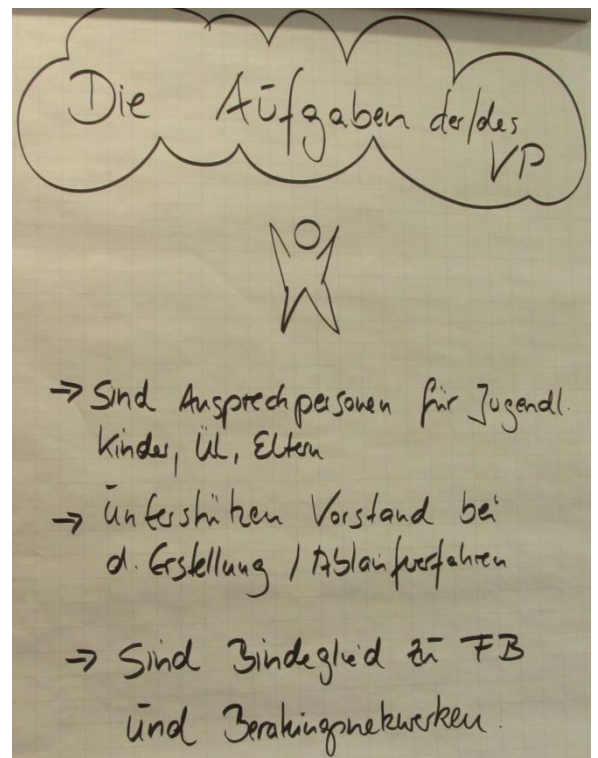 Die Aufgaben der/des
VP
→ Sind Ansprechpersonen für Jugendl.
Kinder, ÜL, Eltern
→ unterstützen Vorstand bei
d. Erstellung / Ablaufverfahren
→ Sind Bindeglied zu FB
und Beratungsnetzwerken.